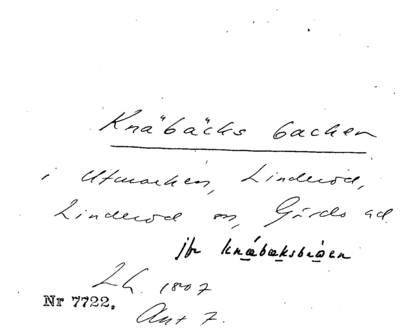 Knäbäcks backen
i Utmarken, Linderöd,
Linderöd sn, Gärds hd
jfr knäbæksbroen
Lh. 1807
Nr 7722.
Akt 7.